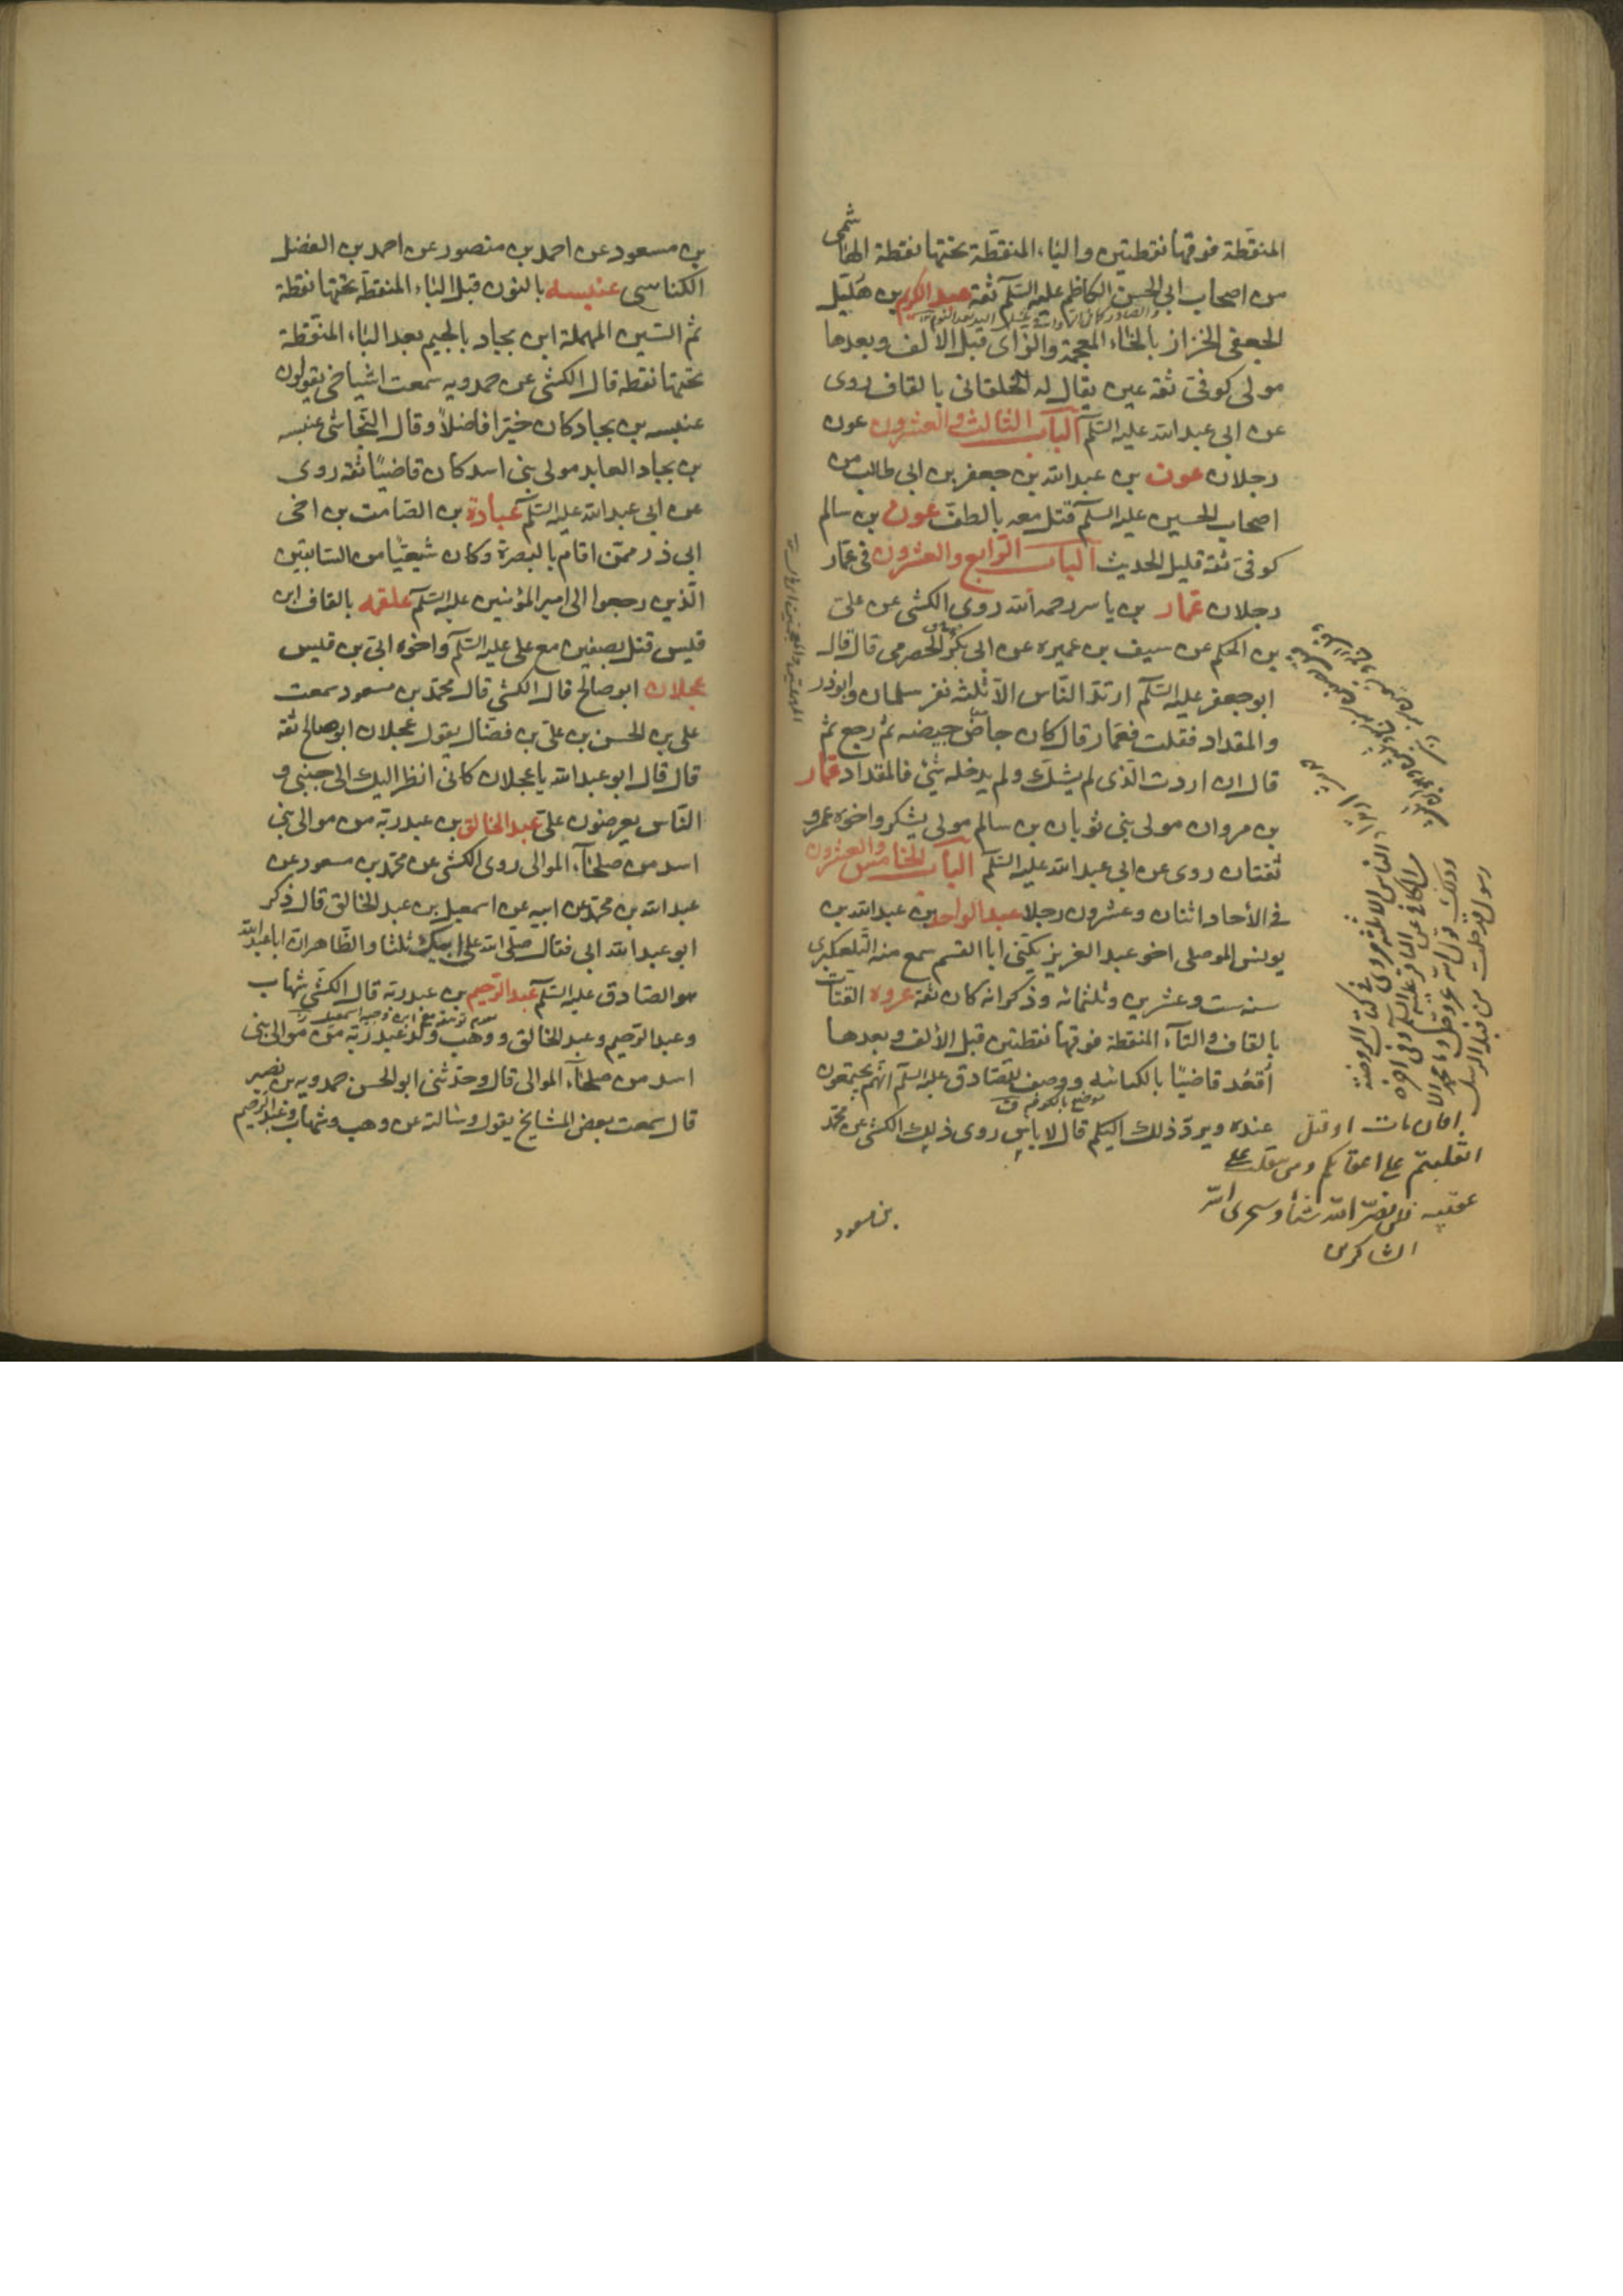 المنقطة فوقها نقطتين والباء المنقطة تحتها نقطة الهاشمى
من اصحاب ابى الحسن الكاظم عليه السلم ثقة عبد الكريم بن هليل
الجعفى الخزاز بالخاء المعجمة والزاى قبل الالف وبعدها
مولى كوفى ثقة عين يقال له الخلقانى بالقاف روى
عن ابى عبد الله عليه السلم الباب الثالث والعشرون عون
رجلان عون بن عبد الله بن جعفر بن ابى طالب من
اصحاب الحسين عليه السلم قتل معه بالطف عون بن سالم
كوفى ثقة قليل الحديث الباب الرابع والعشرون فى عمار
رجلان عمار بن ياسر رحمه الله روى الكشى عن على
بن الحكم عن سيف بن عميره عن ابى بكر الحضرمى قال قال
ابو جعفر عليه السلم ارتد الناس الا ثلثه نفر سلمان وابوذر
والمقداد فقلت فعمار قال كان جاض جيضه ثم رجع ثم
قال ان اردت الذى لم يشك ولم يدخله شئ فالمقداد عمار
بن مروان مولى بنى ثوبان بن سالم مولى يشكر واخوه عمرو
ثقتان روى عن ابى عبد الله عليه السلم الباب الخامس والعشرون
فى الأحاد اثنان وعشرون رجلا عبد الواحد بن عبد الله بن
يونس الموصلى اخو عبد العزيز يكنى ابا القسم سمع منه التلعكبرى
سنه ست وعشرين وثلثمائه وذكر انه كان ثقة عروه القتات
بالقاف والتآء المنقطة فوقها نقطتين قبل الألف وبعدها
أقعد قاضيا بالكناسه ووصف للصادق عليه السلم انهم يجتمعون
موضع بالكوفه ق
عنده ويرد ذلك اليكم قال لا باس روى ذلك الكشى عن محمد
بن مسعود
الناس الا ثلثه مروى فى كتاب الروضة
من الكافى عن الباقر عليه السلم وفى اخره
وذلك قول الله عز وجل وما محمد الا
رسول قد خلت من قبله الرسل
افان مات او قتل
انقلبتم على اعقابكم ومن ينقلب على
عقبيه فلن يضر الله شيئا وسيجزى الله
الشاكرين
بن مسعود عن احمد بن منصور عن احمد بن الفضل
الكناسى عنبسه بالنون قبل الباء المنقطة تحتها نقطة
ثم السين المهملة ابن بجاد بالجيم بعد الباء المنقطة
تحتها نقطه قال الكشى عن حمدويه سمعت اشياخى يقولون
عنبسه بن بجاد كان خيرا فاضلا وقال النجاشى عنبسه
بن بجاد العابد مولى بنى اسد كان قاضيا ثقه روى
عن ابى عبد الله عليه السلم عبادة بن الصامت بن اخى
ابى ذر ممن اقام بالبصرة وكان شيعيا من السابقين
الذين رجعوا الى امير المؤمنين عليه السلم علقمه بالقاف ابن
قيس قتل بصفين مع على عليه السلم واخوه ابى بن قيس
عجلان ابو صالح قال الكشى قال محمد بن مسعود سمعت
على بن الحسن بن على بن فضال يقول عجلان ابو صالح ثقة
قال قال ابو عبد الله يا عجلان كانى انظر اليك الى جنبى و
الناس يعرضون على عبد الخالق بن عبد ربه من موالى بنى
اسد من صلحاء الموالى روى الكشى عن محمد بن مسعود عن
عبد الله بن محمد عن ابيه عن اسمعيل بن عبد الخالق قال ذكر
ابو عبد الله ابى فقال صلى الله على ابيك ثلثا والظاهر ان ابا عبد الله
هو الصادق عليه السلم عبد الرحيم بن عبد ربه قال الكشى شهاب
وعبد الرحيم وعبد الخالق ووهب ولد عبد ربه من موالى بنى
اسد من صلحاء الموالى قال وحدثنى ابو الحسن حمدويه بن نصير
قال سمعت بعض المشايخ يقول وسالته عن وهب وشهاب وعبد الرحيم